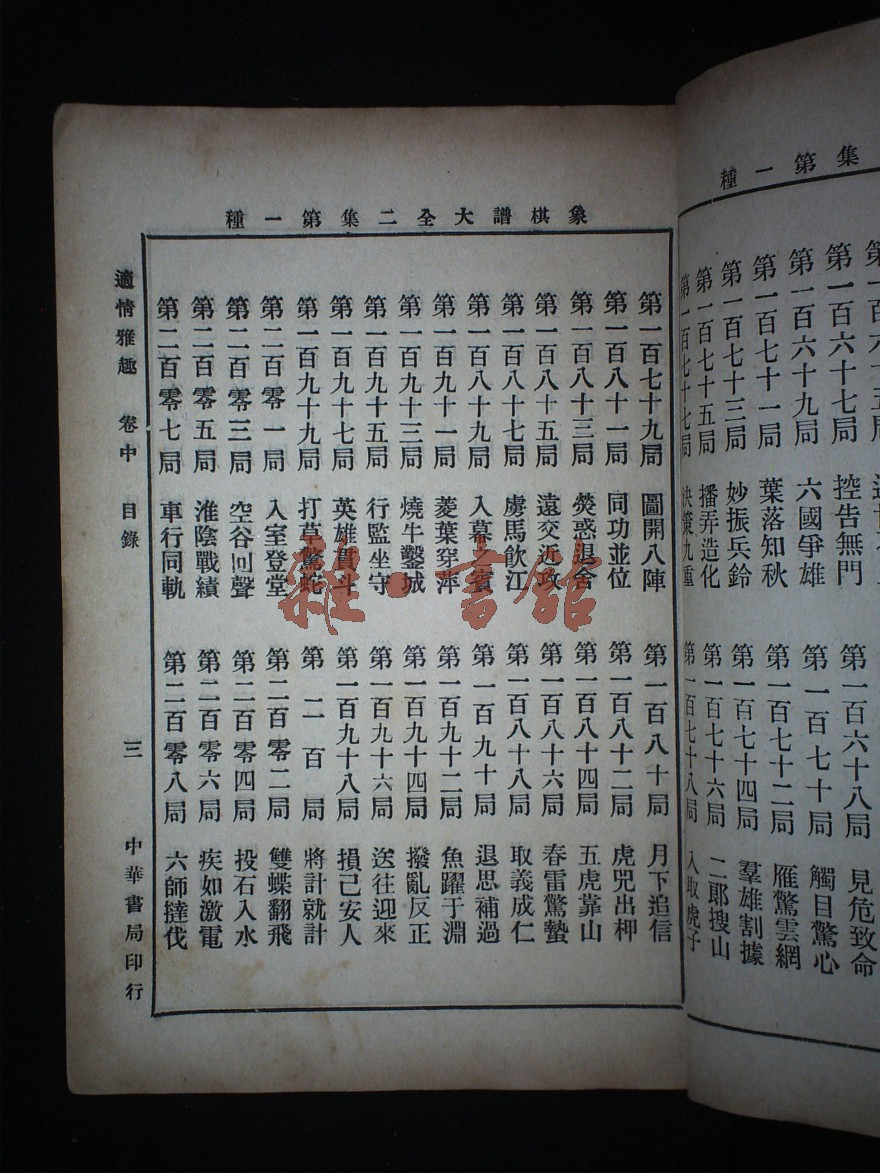 集第一種
第一百六十七局 控告無門 第一百六十八局 見危致命
第一百六十九局 六國爭雄 第一百七十局 觸目驚心
第一百七十一局 葉落知秋 第一百七十二局 雁驚雲網
第一百七十三局 妙振兵鈴 第一百七十四局 羣雄割據
第一百七十五局 播弄造化 第一百七十六局 二郎搜山
第一百七十七局 決策九重 第一百七十八局 入取虎子
象棋譜大全二集第一種
第一百七十九局 圖開八陣 第一百八十局 月下追信
第一百八十一局 同功並位 第一百八十二局 虎兕出柙
第一百八十三局 熒惑退舍 第一百八十四局 五虎靠山
第一百八十五局 遠交近攻 第一百八十六局 春雷驚蟄
第一百八十七局 虜馬飲江 第一百八十八局 取義成仁
第一百八十九局 入幕之賓 第一百九十局 退思補過
第一百九十一局 菱葉穿萍 第一百九十二局 魚躍于淵
第一百九十三局 燒牛鑿城 第一百九十四局 撥亂反正
第一百九十五局 行監坐守 第一百九十六局 送往迎來
第一百九十七局 英雄貫斗 第一百九十八局 損己安人
第一百九十九局 打草驚蛇 第二百局 將計就計
第二百零一局 入室登堂 第二百零二局 雙蝶翻飛
第二百零三局 空谷回聲 第二百零四局 投石入水
第二百零五局 淮陰戰績 第二百零六局 疾如激電
第二百零七局 車行同軌 第二百零八局 六師撻伐
適情雅趣 卷中 目錄 三 中華書局印行
雜·書館